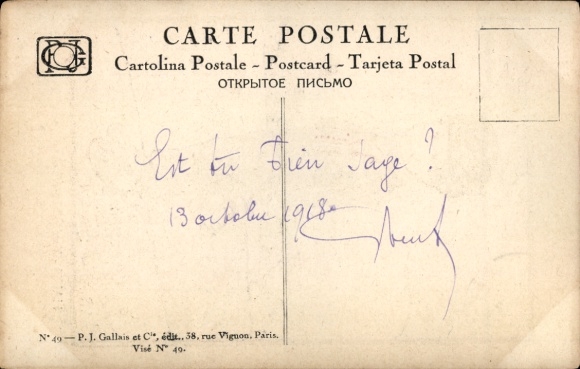 CARTE POSTALE
Cartolina Postale - Postcard - Tarjeta Postal
ОТКРЫТОЕ ПИСЬМО
Est tu bien sage ?
13 octobre 1918
N° 49 — P. J. Gallais et Cie, édit., 38, rue Vignon, Paris.
Visé N° 49.